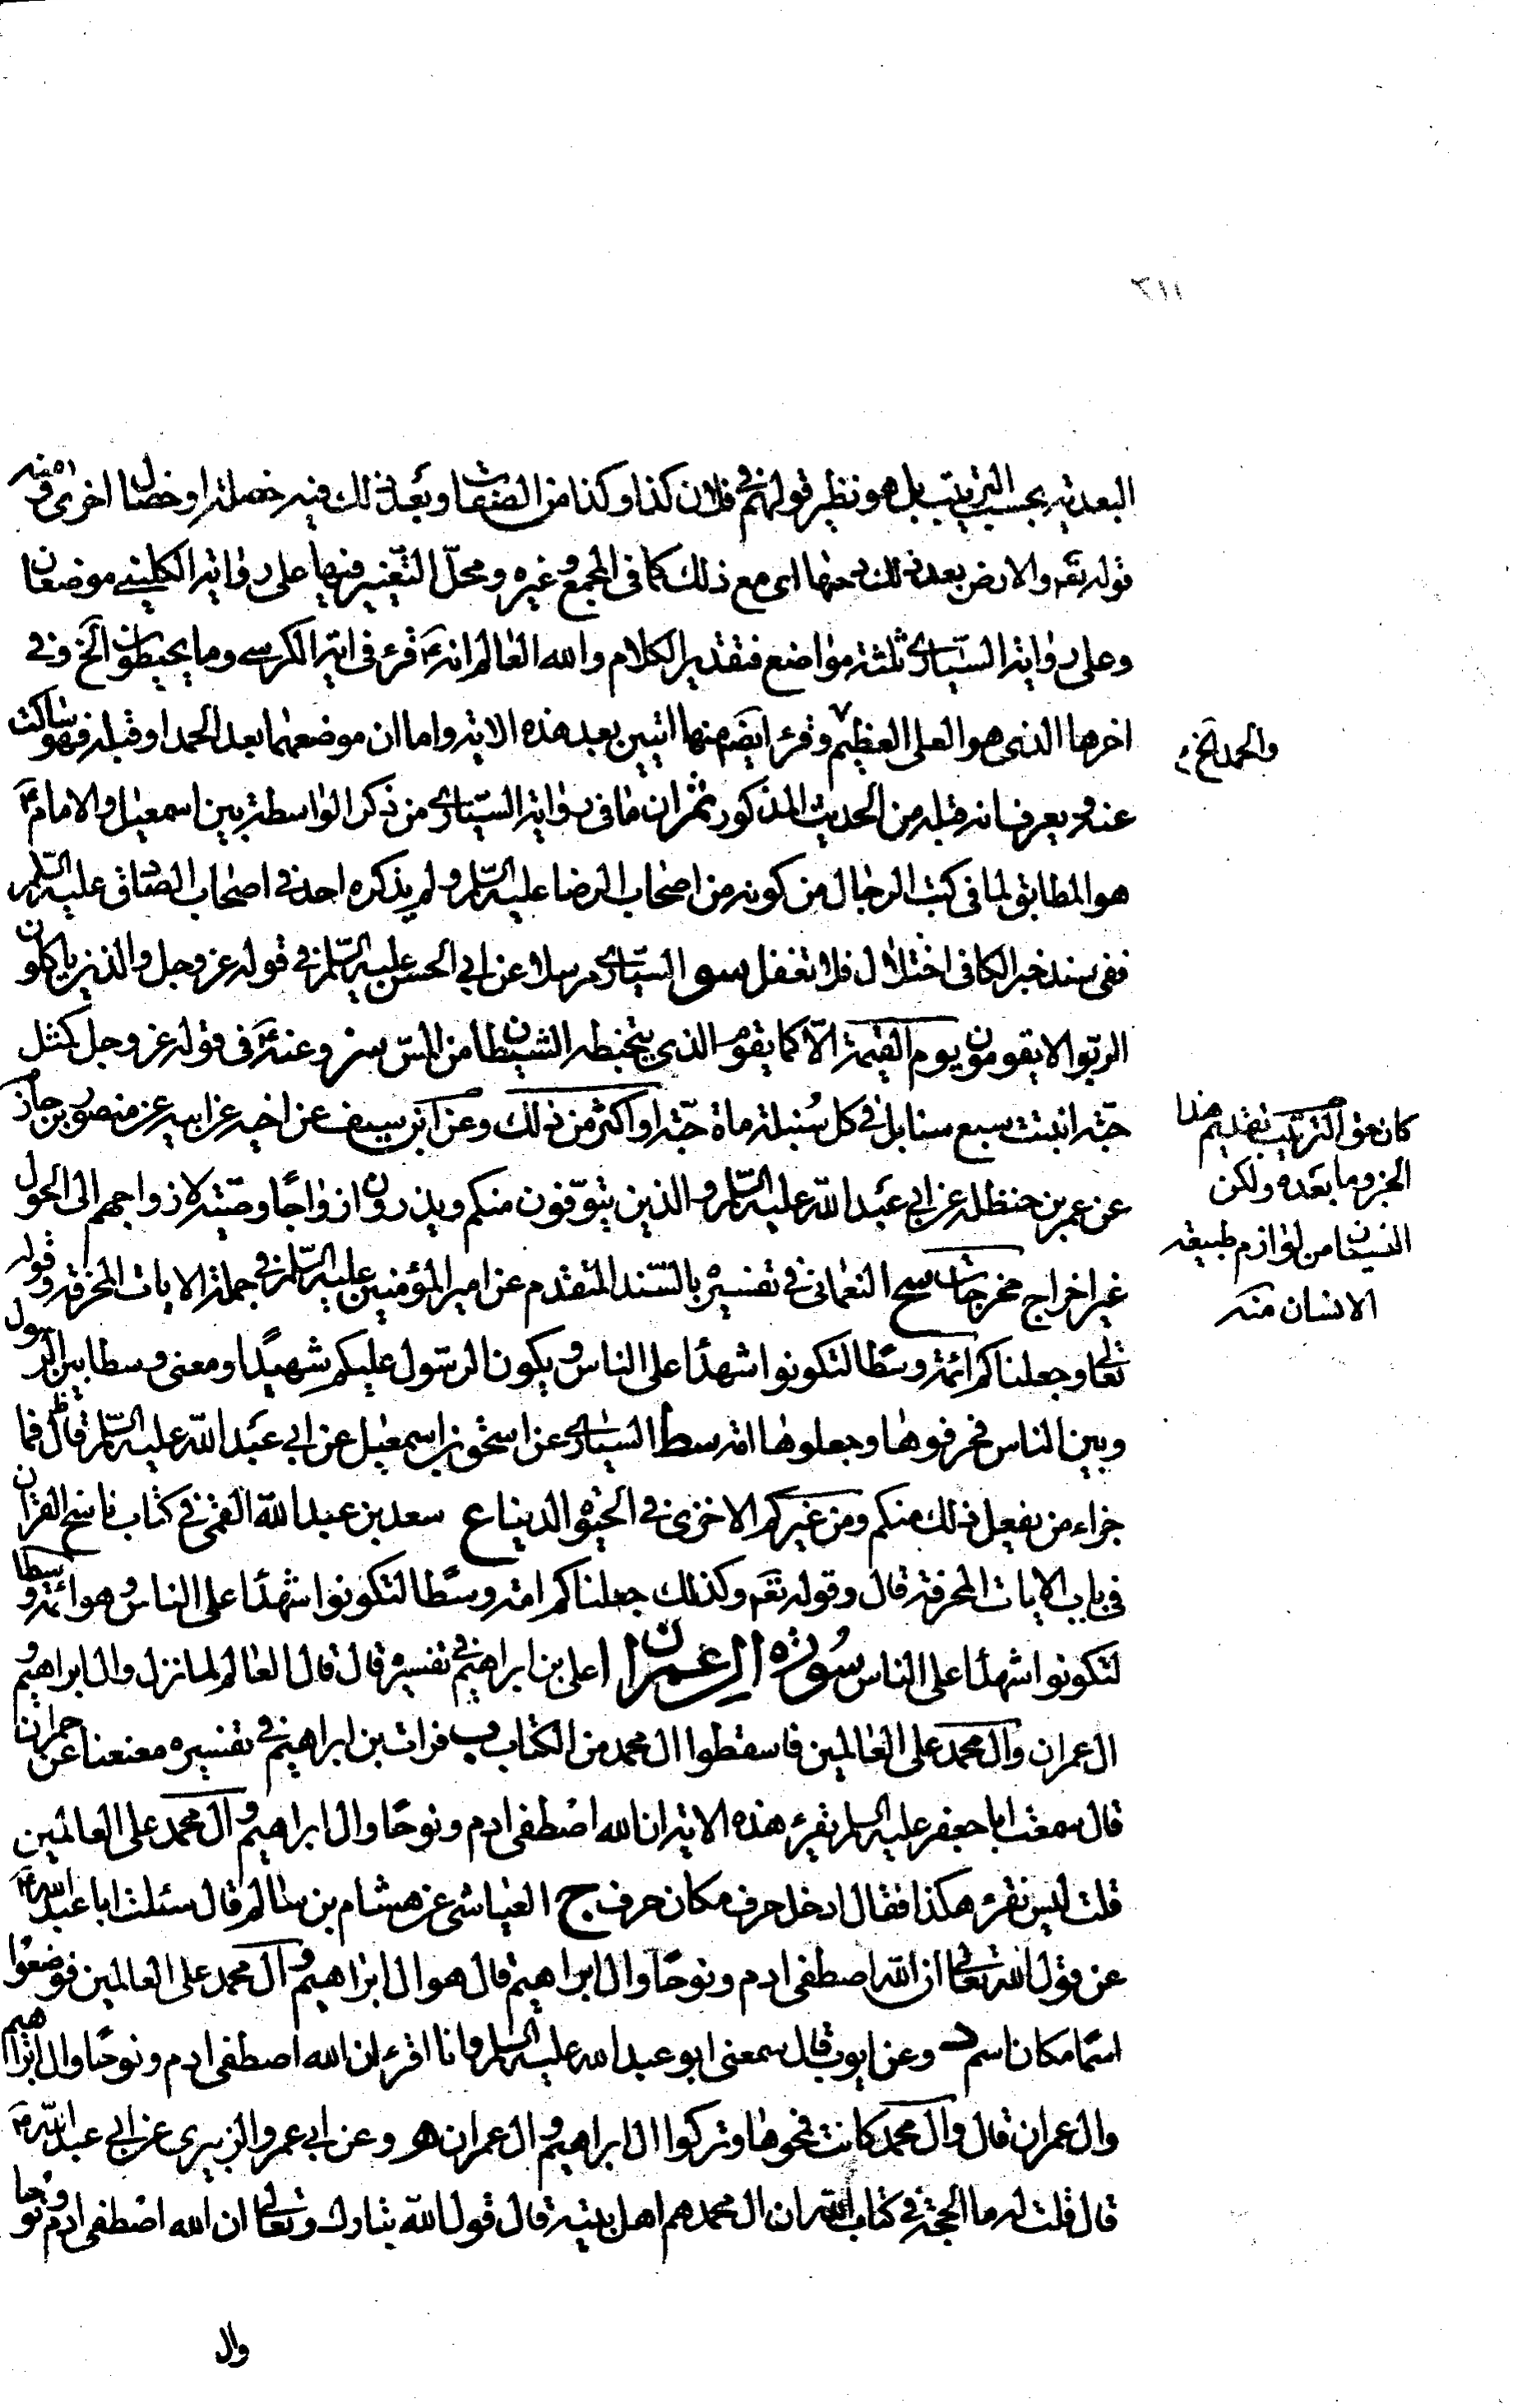 ٢١١
البعدية بحسب الترتيب بل هو نظير قولهم في فلان كذا وكذا من الصفات وبعد ذلك فيه خصلة او خصال اخرى ومنه
قوله تعه والارض بعد ذلك دحيها اى مع ذلك كما في المجمع وغيره ومحلّ التغيير فيها على رواية الكليني موضعان
وعلى رواية السّيّارى ثلثة مواضع فتقدير الكلام والله العالم انه ع قرء في اية الكرسي وما يحيطون الخ وفي
اخرها الذى هو العلى العظيم وقرء ايضه منها اثنين بعد هذه الاية واما ان موضعهما بعد الحمد او قبله فهو ساكت
والحمد الخ
عنه ويعرف انه قبله من الحديث المذكور ثم ان ما في رواية السيّارى من ذكر الواسطة بين اسمعيل والامام ع
هو المطابق لما في كتب الرجال من كونه من اصحاب الرضا عليه السّلم ولم يذكره احد في اصحاب الصادق عليه السّلم
ففي سند خبر الكافى اختلال فلا تغفل سو السيّارى مرسلا عن ابي الحسن عليه السّلم في قوله عز وجل والذين ياكلون
الربوا لا يقومون يوم القيمة الّا كما يقوم الذى يتخبطه الشيطان من المسّ سز وعنه ع في قوله عز وجل كمثل
حبّة انبتت سبع سنابل في كل سُنبلة ماة حبّة او اكثر من ذلك وعن ابن سيف عن اخيه عن ابيه عن منصور بن حازم
كان حق الترتيب تقديم هذا
الخبر وما بعده ولكن
عن عمر بن حنظلة عن ابي عَبد الله عليه السّلم والذين يتوّفون منكم ويذرون ازواجًا وصيّة لازواجهم الى الحول
النسيان من لوازم طبيعة
غير اخراج مخرجات سح النعمانى في تفسيره بالسّند المتقدم عن امير المؤمنين عليه السّلم في جملة الايات المحرفة وقوله
الانسان منه
تعالى وجعلناكم ائمة وسطًا لتكونوا شهداء على الناس ويكون الرسّول عليكم شهيدًا ومعنى وسطا بين الرسول
وبين الناس فحرفوها وجعلوها امّة سط السيّارى عن اسحق بن اسمعيل عن ابي عبد الله عليه السّلم قال فما
جزاء من يفعل ذلك منكم ومن غيركم الا خزى في الحيوة الدنيا ع سعد بن عبد الله القمى في كتاب ناسخ القران
في باب الايات المحرفة قال وقوله تعه وكذلك جعلناكم امة وسطًا لتكونوا شهداء على الناس وهو ائمة وسطا
لتكونوا شهداء على الناس سورة ال عمران ا على بن ابراهيم في تفسيره قال قال العالم لما نزل وال ابراهيم و
ال عمران وال محمد على العالمين فاسقطوا ال محمد من الكتاب ب فرات بن ابراهيم في تفسيره معنعنا عن حمران
قال سمعت ابا جعفر عليه السلم يقرء هذه الاية ان الله اصطفى ادم ونوحًا وال ابراهيم وال محمد على العالمين
قلت ليس نقرء هكذا فقال ادخل حرف مكان حرف ج العياشى عن هشام بن سالم قال سئلت ابا عبد الله ع
عن قول الله تعالى ان الله اصطفى ادم ونوحًا وال ابراهيم قال هو ال ابراهيم وآل محمد على العالمين فوضعوا
اسمًا مكان اسم د وعن ايوب قال سمعنى ابو عبد الله عليه السلم وانا اقرء ان الله اصطفى ادم ونوحًا وال ابراهيم
وال عمران قال وآل محمد كانت فمحوها وتركوا ال ابراهيم وال عمران هـ وعن ابي عمرو الزبيرى عن ابي عبد الله ع
قال قلت له ما الحجة في كتاب الله ان ال محمد هم اهل بيته قال قول الله تبارك وتعالى ان الله اصطفى ادم ونوحا
وال